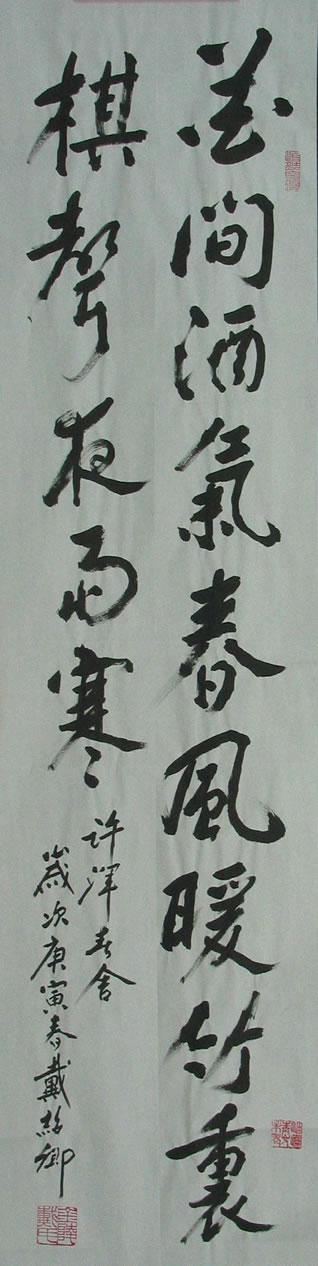 花間酒氣春風暖竹裏
棋聲夜雨寒
許渾春舍
歲次庚寅春戴 卿